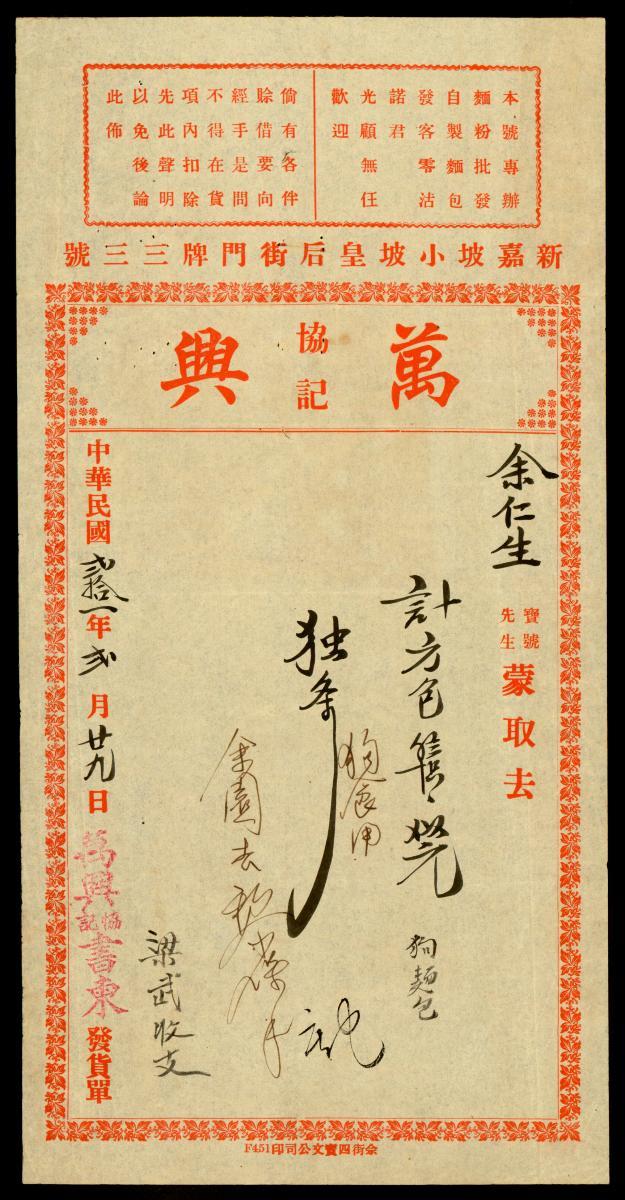 本號專辦
麵粉批發
自製麵包
發客零沽
諾君
光顧無任
歡迎
倘有各伴
賒借要向
經手是問
不得在貨
項內扣除
先此聲明
以免後論
此佈
新嘉坡小坡皇后街門牌三三號
萬興
協記
余仁生
寶號
先生
蒙取去
計方包
狗麵包
独条
梁武收支
中華民國弍拾一年弍月廿九日
萬興協記書柬
發貨單
余街四寶文公司印F451